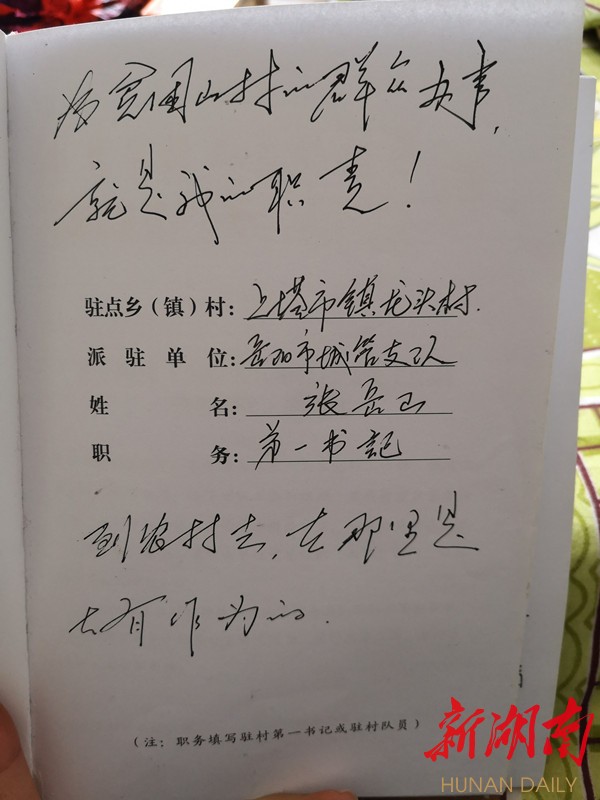 为贫困山村的群众办事，
就是我的职责！
驻点乡（镇）村：上塔市镇龙头村.
派驻单位：岳阳市城管支队
姓名：张岳山
职务：第一书記
到农村去，在那里是
大有作为的.
（注：职务填写驻村第一书记或驻村队员）
新湖南
HUNAN DAILY